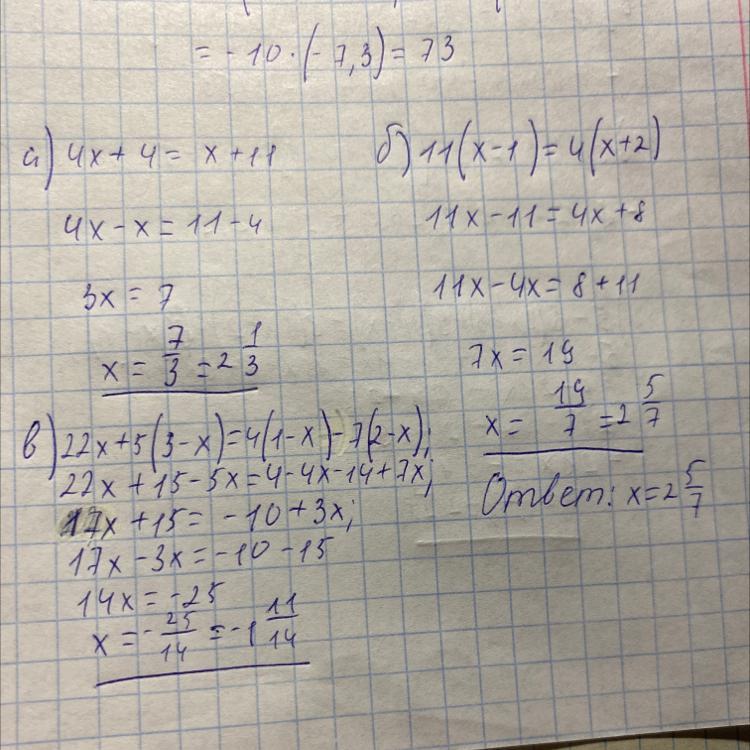 = -10·(-7,3) = 73
а) 4x + 4 = x + 11
4x - x = 11 - 4
3x = 7
x = 7/3 = 2 1/3
б) 11(x-1) = 4(x+2)
11x - 11 = 4x + 8
11x - 4x = 8 + 11
7x = 19
x = 19/7 = 2 5/7
Ответ: x = 2 5/7
в) 22x + 5(3-x) = 4(1-x) - 7(2-x);
22x + 15 - 5x = 4 - 4x - 14 + 7x;
17x + 15 = -10 + 3x;
17x - 3x = -10 - 15
14x = -25
x = -25/14 = -1 11/14